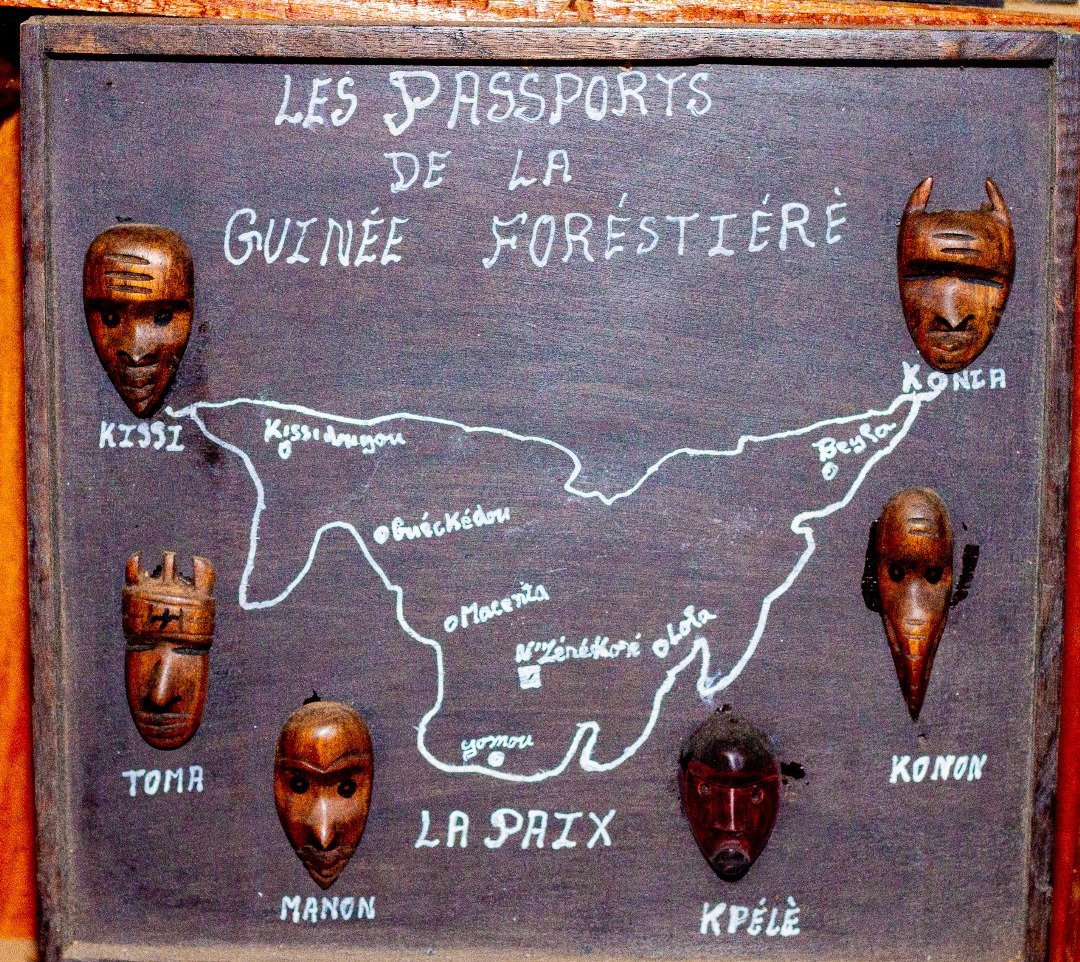 LES PASSPORTS
DE LA
GUINÉE FORÉSTIÉRÈ
KONIA
KISSI
Kissidougou
Beyla
Guéckédou
Macenta
N'Zérékoré
Lola
Yomou
TOMA
KONON
LA PAIX
MANON
KPÉLÈ